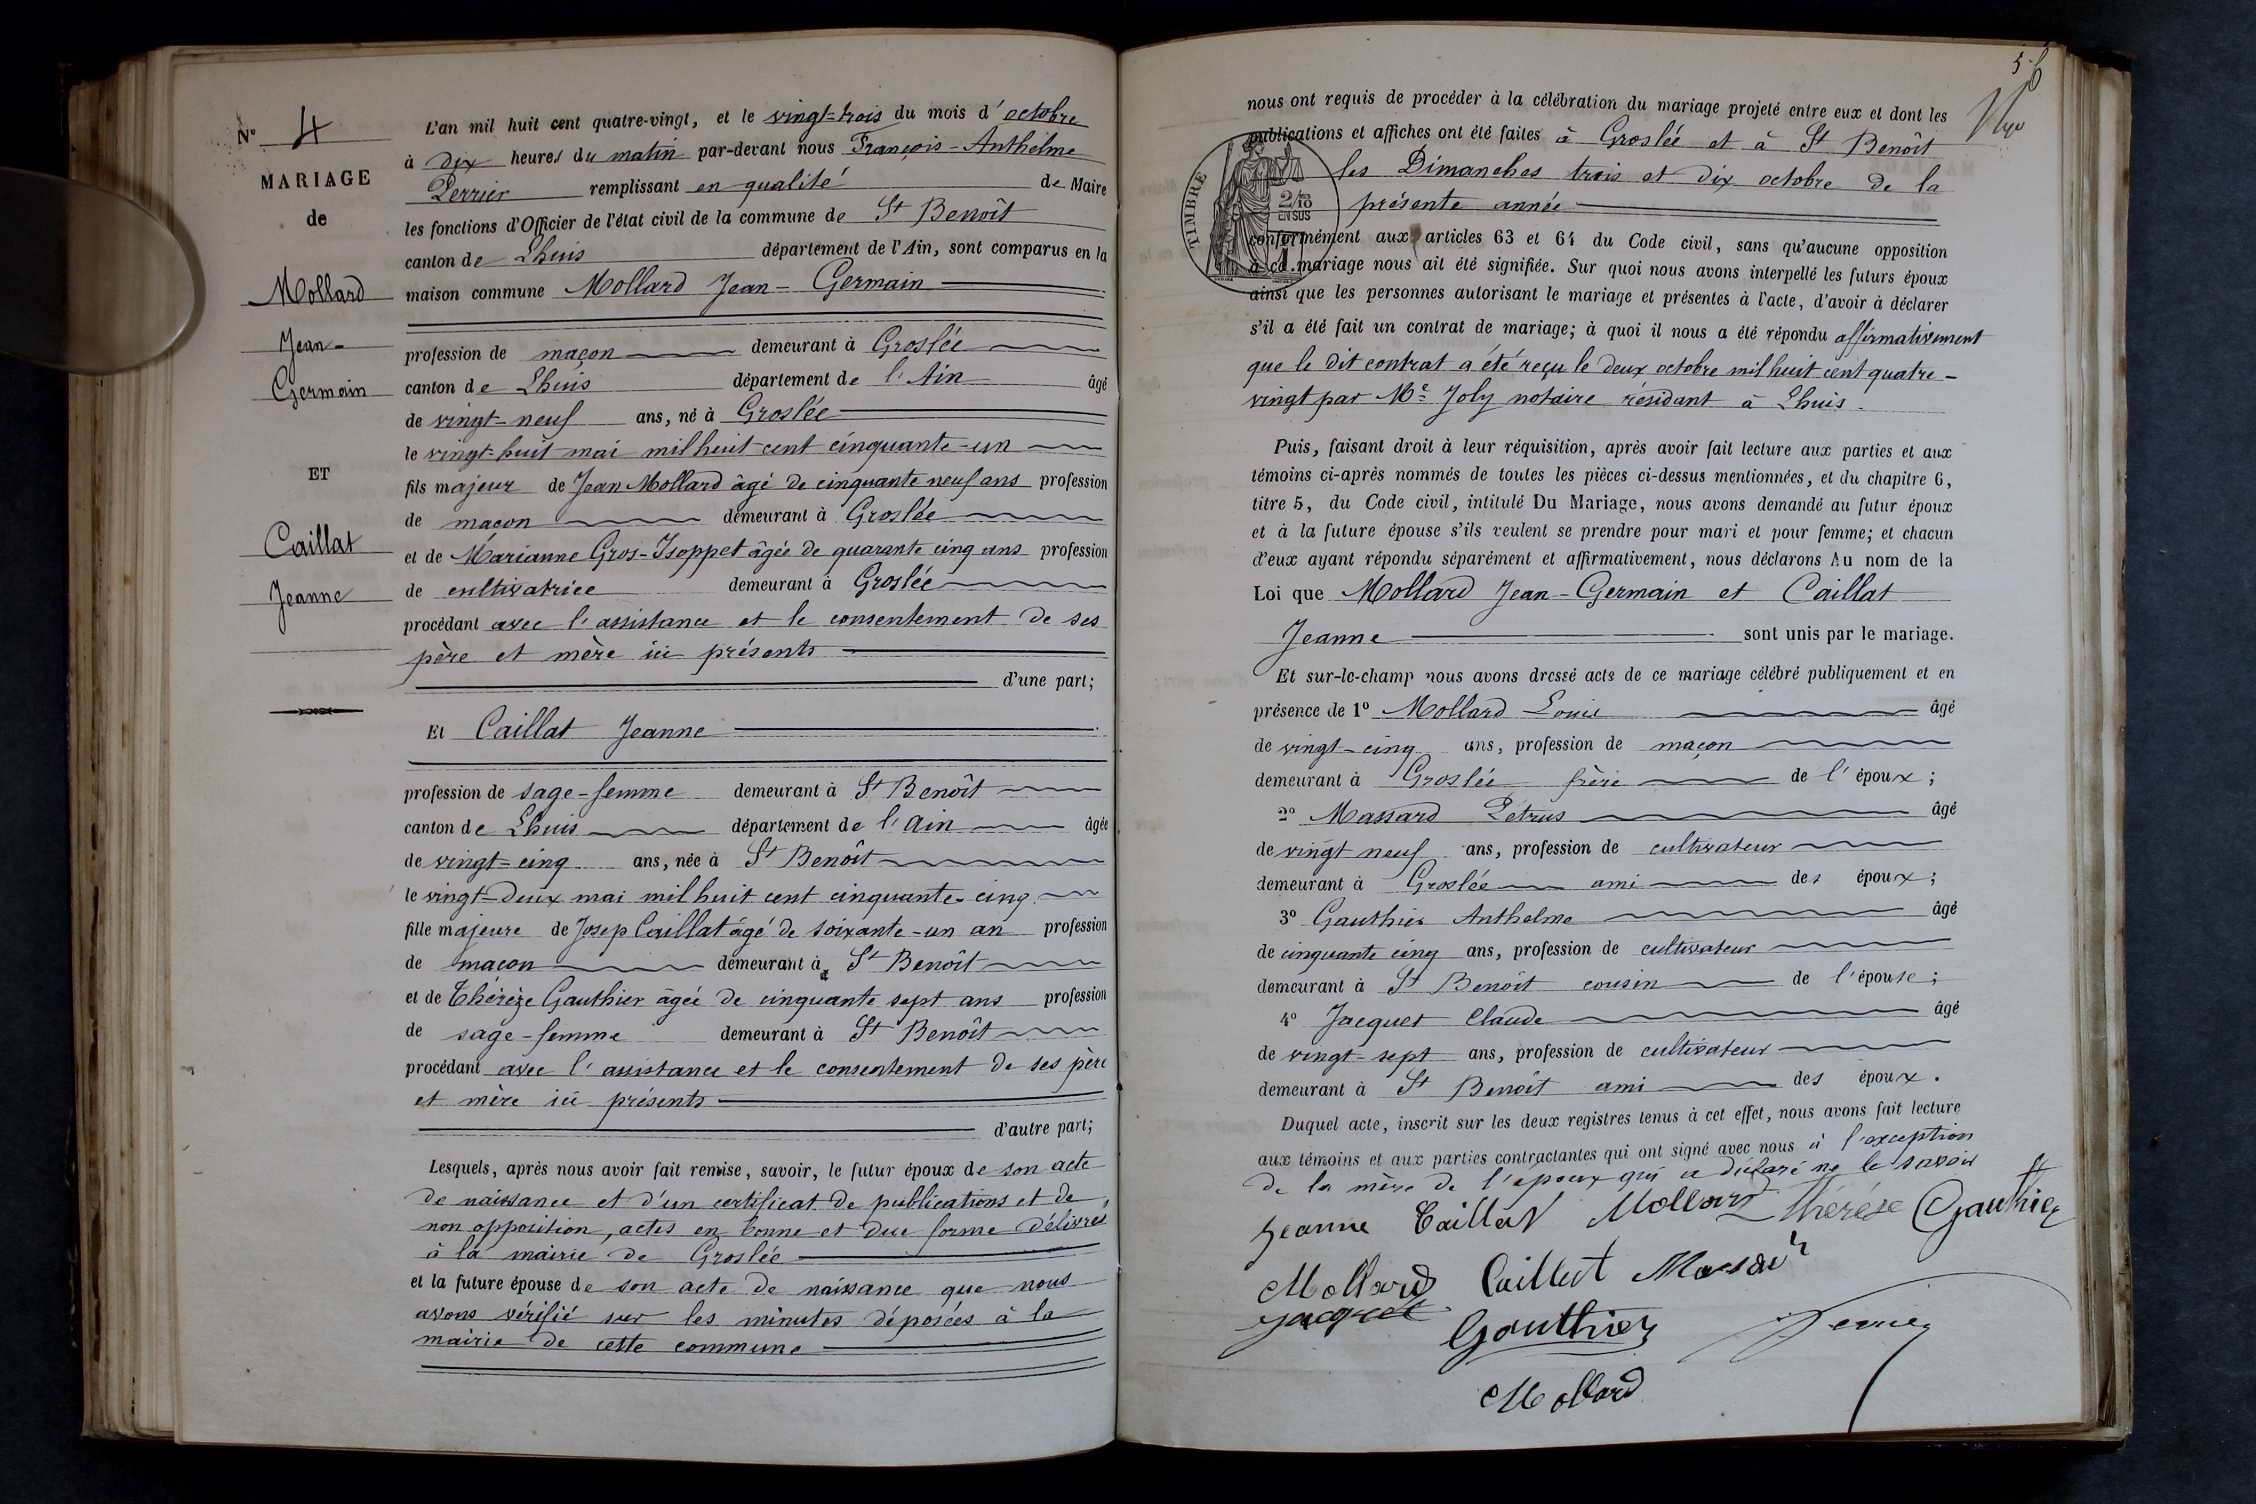 N° 4
MARIAGE
de
Mollard
Jean-
Germain
ET
Caillat
Jeanne
L'an mil huit cent quatre-vingt, et le vingt-trois du mois d'octobre
à dix heures du matin par-devant nous François-Anthelme
Perrier remplissant en qualité de Maire
les fonctions d'Officier de l'état civil de la commune de St Benoît
canton de Lhuis département de l'Ain, sont comparus en la
maison commune Mollard Jean-Germain
profession de maçon demeurant à Groslée
canton de Lhuis département de l'Ain âgé
de vingt-neuf ans, né à Groslée
le vingt-huit mai mil huit cent cinquante-un
fils majeur de Jean Mollard âgé de cinquante neuf ans profession
de maçon demeurant à Groslée
et de Marianne Gros-Isoppet âgée de quarante cinq ans profession
de cultivatrice demeurant à Groslée
procédant avec l'assistance et le consentement de ses
père et mère ici présents
d'une part;
Et Caillat Jeanne
profession de sage-femme demeurant à St Benoît
canton de Lhuis département de l'Ain âgée
de vingt-cinq ans, née à St Benoît
le vingt-deux mai mil huit cent cinquante-cinq
fille majeure de Josep Caillat âgé de soixante-un an profession
de maçon demeurant à St Benoît
et de Thérèze Gauthier âgée de cinquante sept ans profession
de sage-femme demeurant à St Benoît
procédant avec l'assistance et le consentement de ses père
et mère ici présents
d'autre part;
Lesquels, après nous avoir fait remise, savoir, le futur époux de son acte
de naissance et d'un certificat de publications et de
non opposition, actes en bonne et due forme délivrés
à la mairie de Groslée
et la future épouse de son acte de naissance que nous
avons vérifié sur les minutes déposées à la
mairie de cette commune
56
nous ont requis de procéder à la célébration du mariage projeté entre eux et dont les
publications et affiches ont été faites à Groslée et à St Benoît
les Dimanches trois et dix octobre de la
présente année
TIMBRE
2/10
EN SUS
conformément aux articles 63 et 64 du Code civil, sans qu'aucune opposition
à ce mariage nous ait été signifiée. Sur quoi nous avons interpellé les futurs époux
ainsi que les personnes autorisant le mariage et présentes à l'acte, d'avoir à déclarer
s'il a été fait un contrat de mariage; à quoi il nous a été répondu affirmativement
que le dit contrat a été reçu le deux octobre mil huit cent quatre-
vingt par Me Joly notaire résidant à Lhuis.
Puis, faisant droit à leur réquisition, après avoir fait lecture aux parties et aux
témoins ci-après nommés de toutes les pièces ci-dessus mentionnées, et du chapitre 6,
titre 5, du Code civil, intitulé Du Mariage, nous avons demandé au futur époux
et à la future épouse s'ils veulent se prendre pour mari et pour femme; et chacun
d'eux ayant répondu séparément et affirmativement, nous déclarons Au nom de la
Loi que Mollard Jean-Germain et Caillat
Jeanne sont unis par le mariage.
Et sur-le-champ nous avons dressé acte de ce mariage célébré publiquement et en
présence de 1° Mollard Louis âgé
de vingt-cinq ans, profession de maçon
demeurant à Groslée frère de l'époux;
2° Massard Pétrus âgé
de vingt neuf ans, profession de cultivateur
demeurant à Groslée ami des époux;
3° Gauthier Anthelme âgé
de cinquante cinq ans, profession de cultivateur
demeurant à St Benoît cousin de l'épouse;
4° Jacquet Claude âgé
de vingt-sept ans, profession de cultivateur
demeurant à St Benoît ami des époux.
Duquel acte, inscrit sur les deux registres tenus à cet effet, nous avons fait lecture
aux témoins et aux parties contractantes qui ont signé avec nous à l'exception
de la mère de l'époux qui a déclaré ne le savoir
Jeanne Caillat Mollard Thérése Gauthier
Mollard Caillat Massard
Jacquet
Gauthier Perrier
Mollard